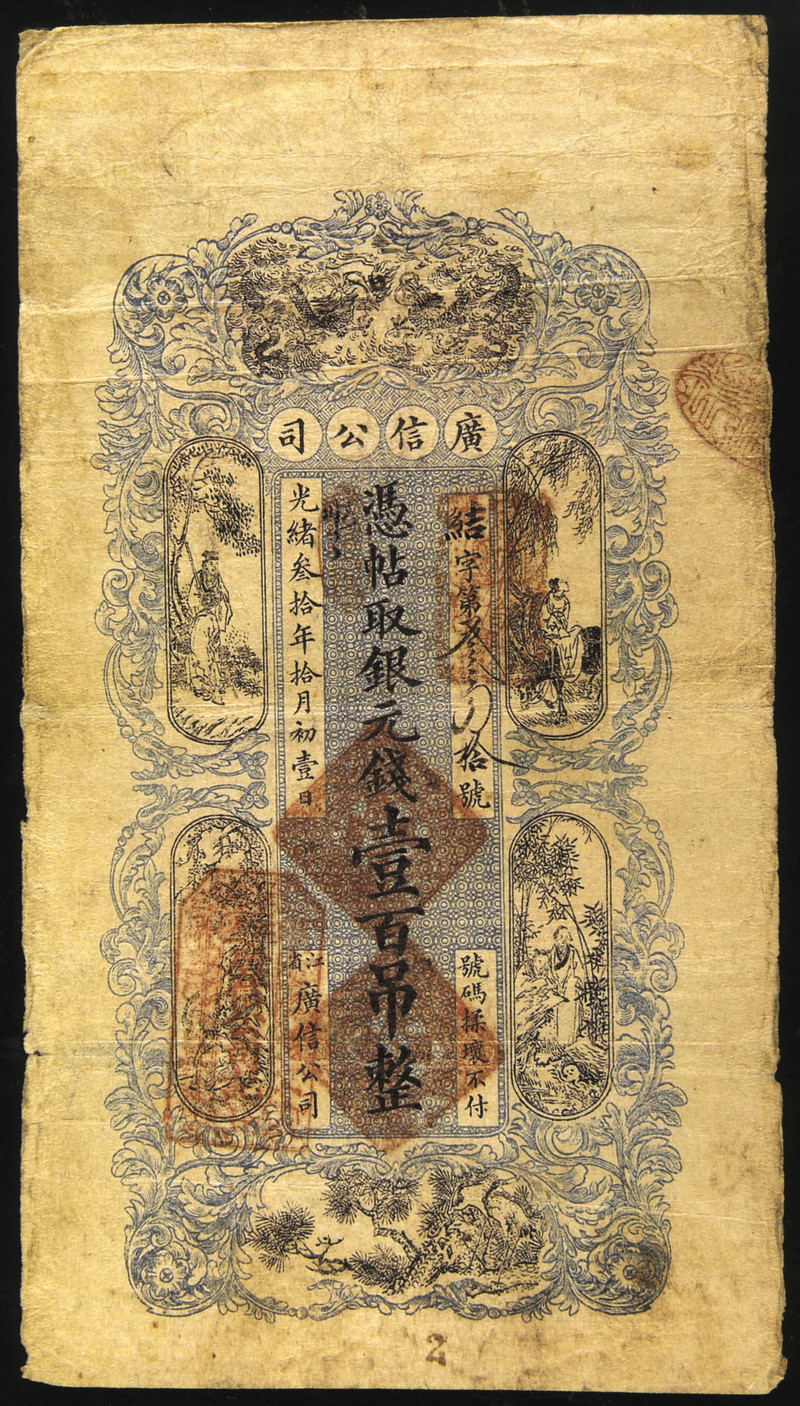 廣信公司
結字第
拾號
號碼揉壞不付
憑帖取銀元錢壹百吊整
光緒叁拾年拾月初壹日
江省廣信公司
2